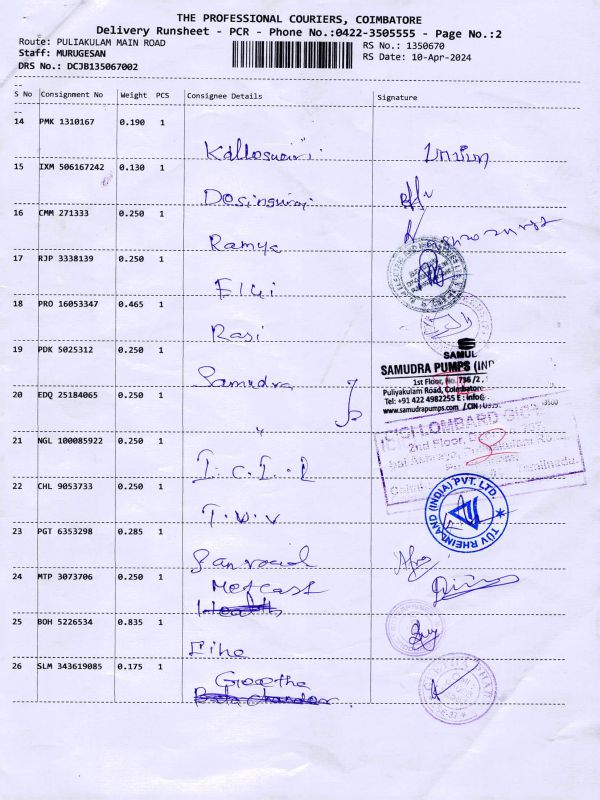 THE PROFESSIONAL COURIERS, COIMBATORE
Delivery Runsheet - PCR - Phone No.:0422-3505555 - Page No.:2
Route: PULIAKULAM MAIN ROAD
RS No.: 1350670
Staff: MURUGESAN
RS Date: 10-Apr-2024
DRS No.: DCJB135067002
S No Consignment No Weight PCS Consignee Details Signature
14 PMK 1310167 0.190 1
15 IXM 506167242 0.130 1
16 CMM 271333 0.250 1
Ramya
17 RJP 3338139 0.250 1
18 PRO 16053347 0.465 1
Rasi
19 PDK 5025312 0.250 1
Samudra
SAMUL
SAMUDRA PUMPS (IN
1st Floor, No. 736 /2
Puliyakulam Road, Coimbatore
Tel: +91 422 4982255 E : info@
www.samudrapumps.com / CIN :
20 EDQ 25184065 0.250 1
ICICI LOMBARD
2nd Floor,
21 NGL 100085922 0.250 1
I.C.I.I
22 CHL 9053733 0.250 1
T.U.V
TÜV RHEINLAND (INDIA) PVT. LTD.
23 PGT 6353298 0.285 1
24 MTP 3073706 0.250 1
Metcast
25 BOH 5226534 0.835 1
26 SLM 343619085 0.175 1
Geetha